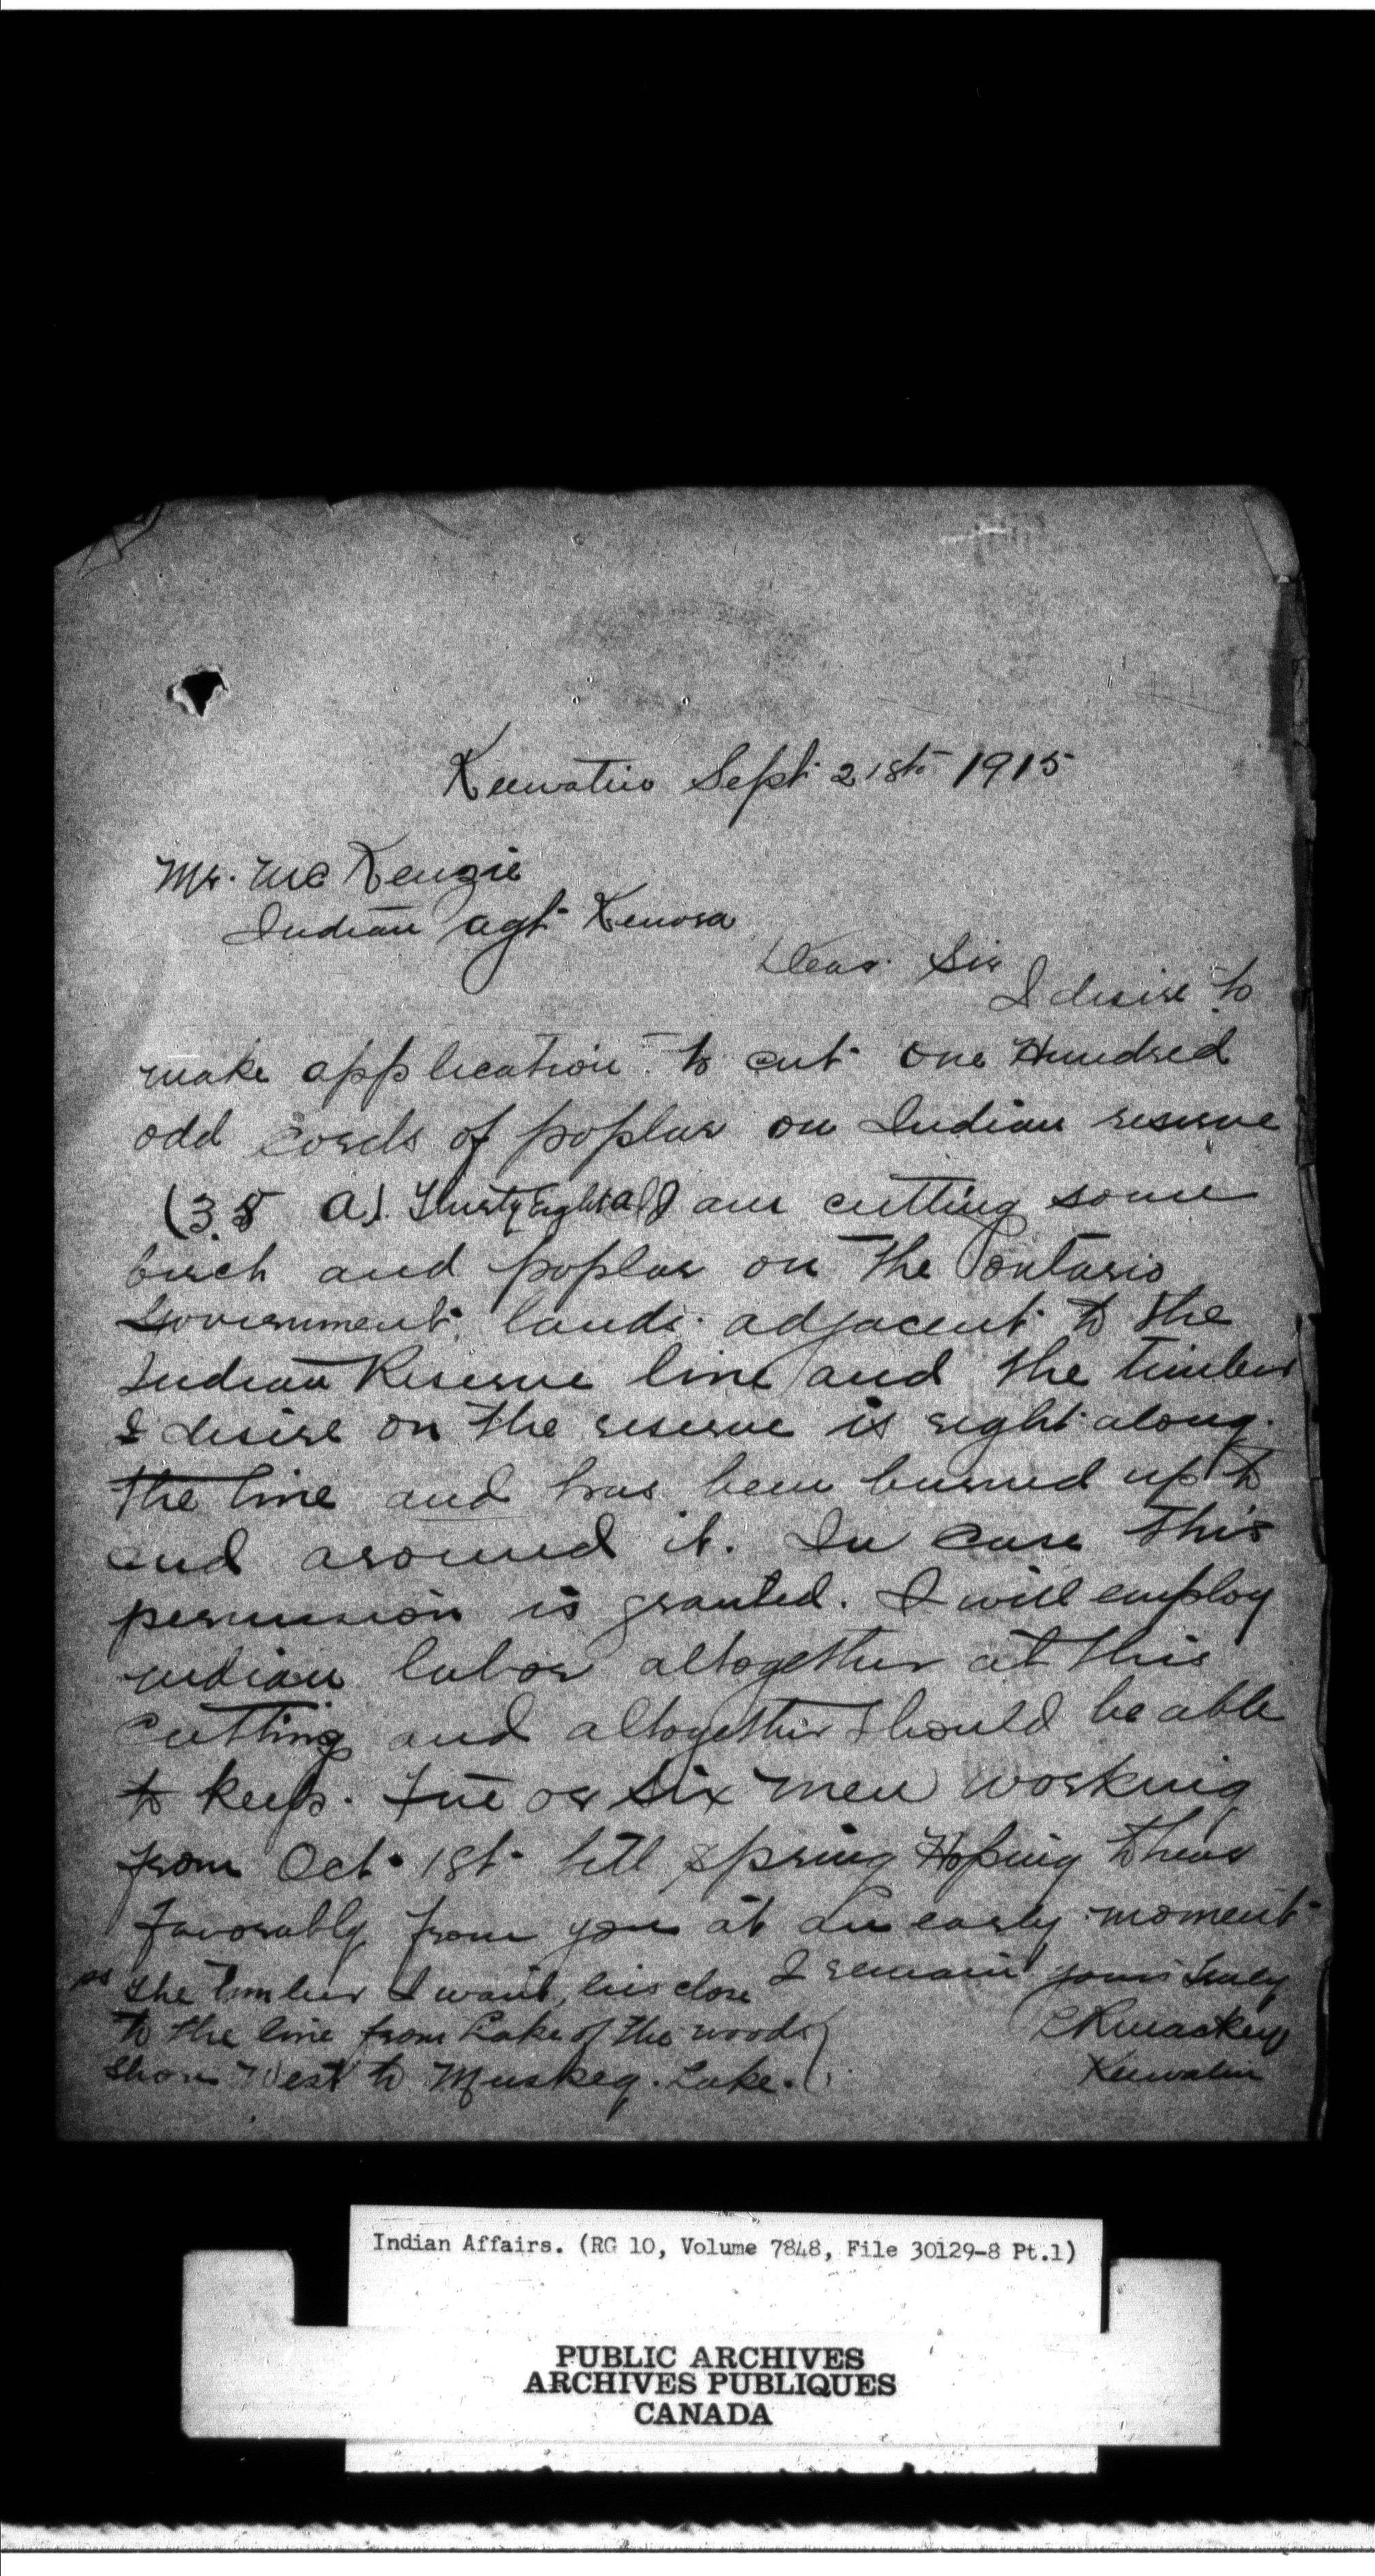 Keewatin Sept 21st 1915
Mr. McKenzie
Indian agt Kenora
Dear Sir
I desire to
make application to cut one Hundred
odd cords of poplar on Indian reserve
(38 A). Thirty Eight a) I am cutting some
birch and poplar on the Ontario
Government lands adjacent to the
Indian Reserve line and the timber
I desire on the reserve is right along
the line and has been burned up to
and around it. In case this
permission is granted. I will employ
indian labor altogether at this
cutting and altogether should be able
to keep five or six men working
from Oct 1st till spring Hoping to hear
favorably from you at an early moment
I remain yours truly
Mackey
Keewatin
ps The timber I want, lies close
to the line from Lake of the woods
shore West to Muskeg Lake.
Indian Affairs. (RG 10, Volume 7848, File 30129-8 Pt.1)
PUBLIC ARCHIVES
ARCHIVES PUBLIQUES
CANADA